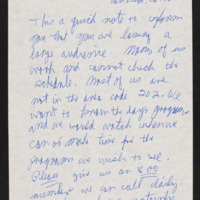 This a quick note to inform
you that you are losing a
large audience. Many of us
work and cannot check the
schedule. Most of us are
not in the area code 202. We
want to know the days programs
and we would watch
or make time for the
programs we wish to see.
Please give us an 800
number we can call daily.